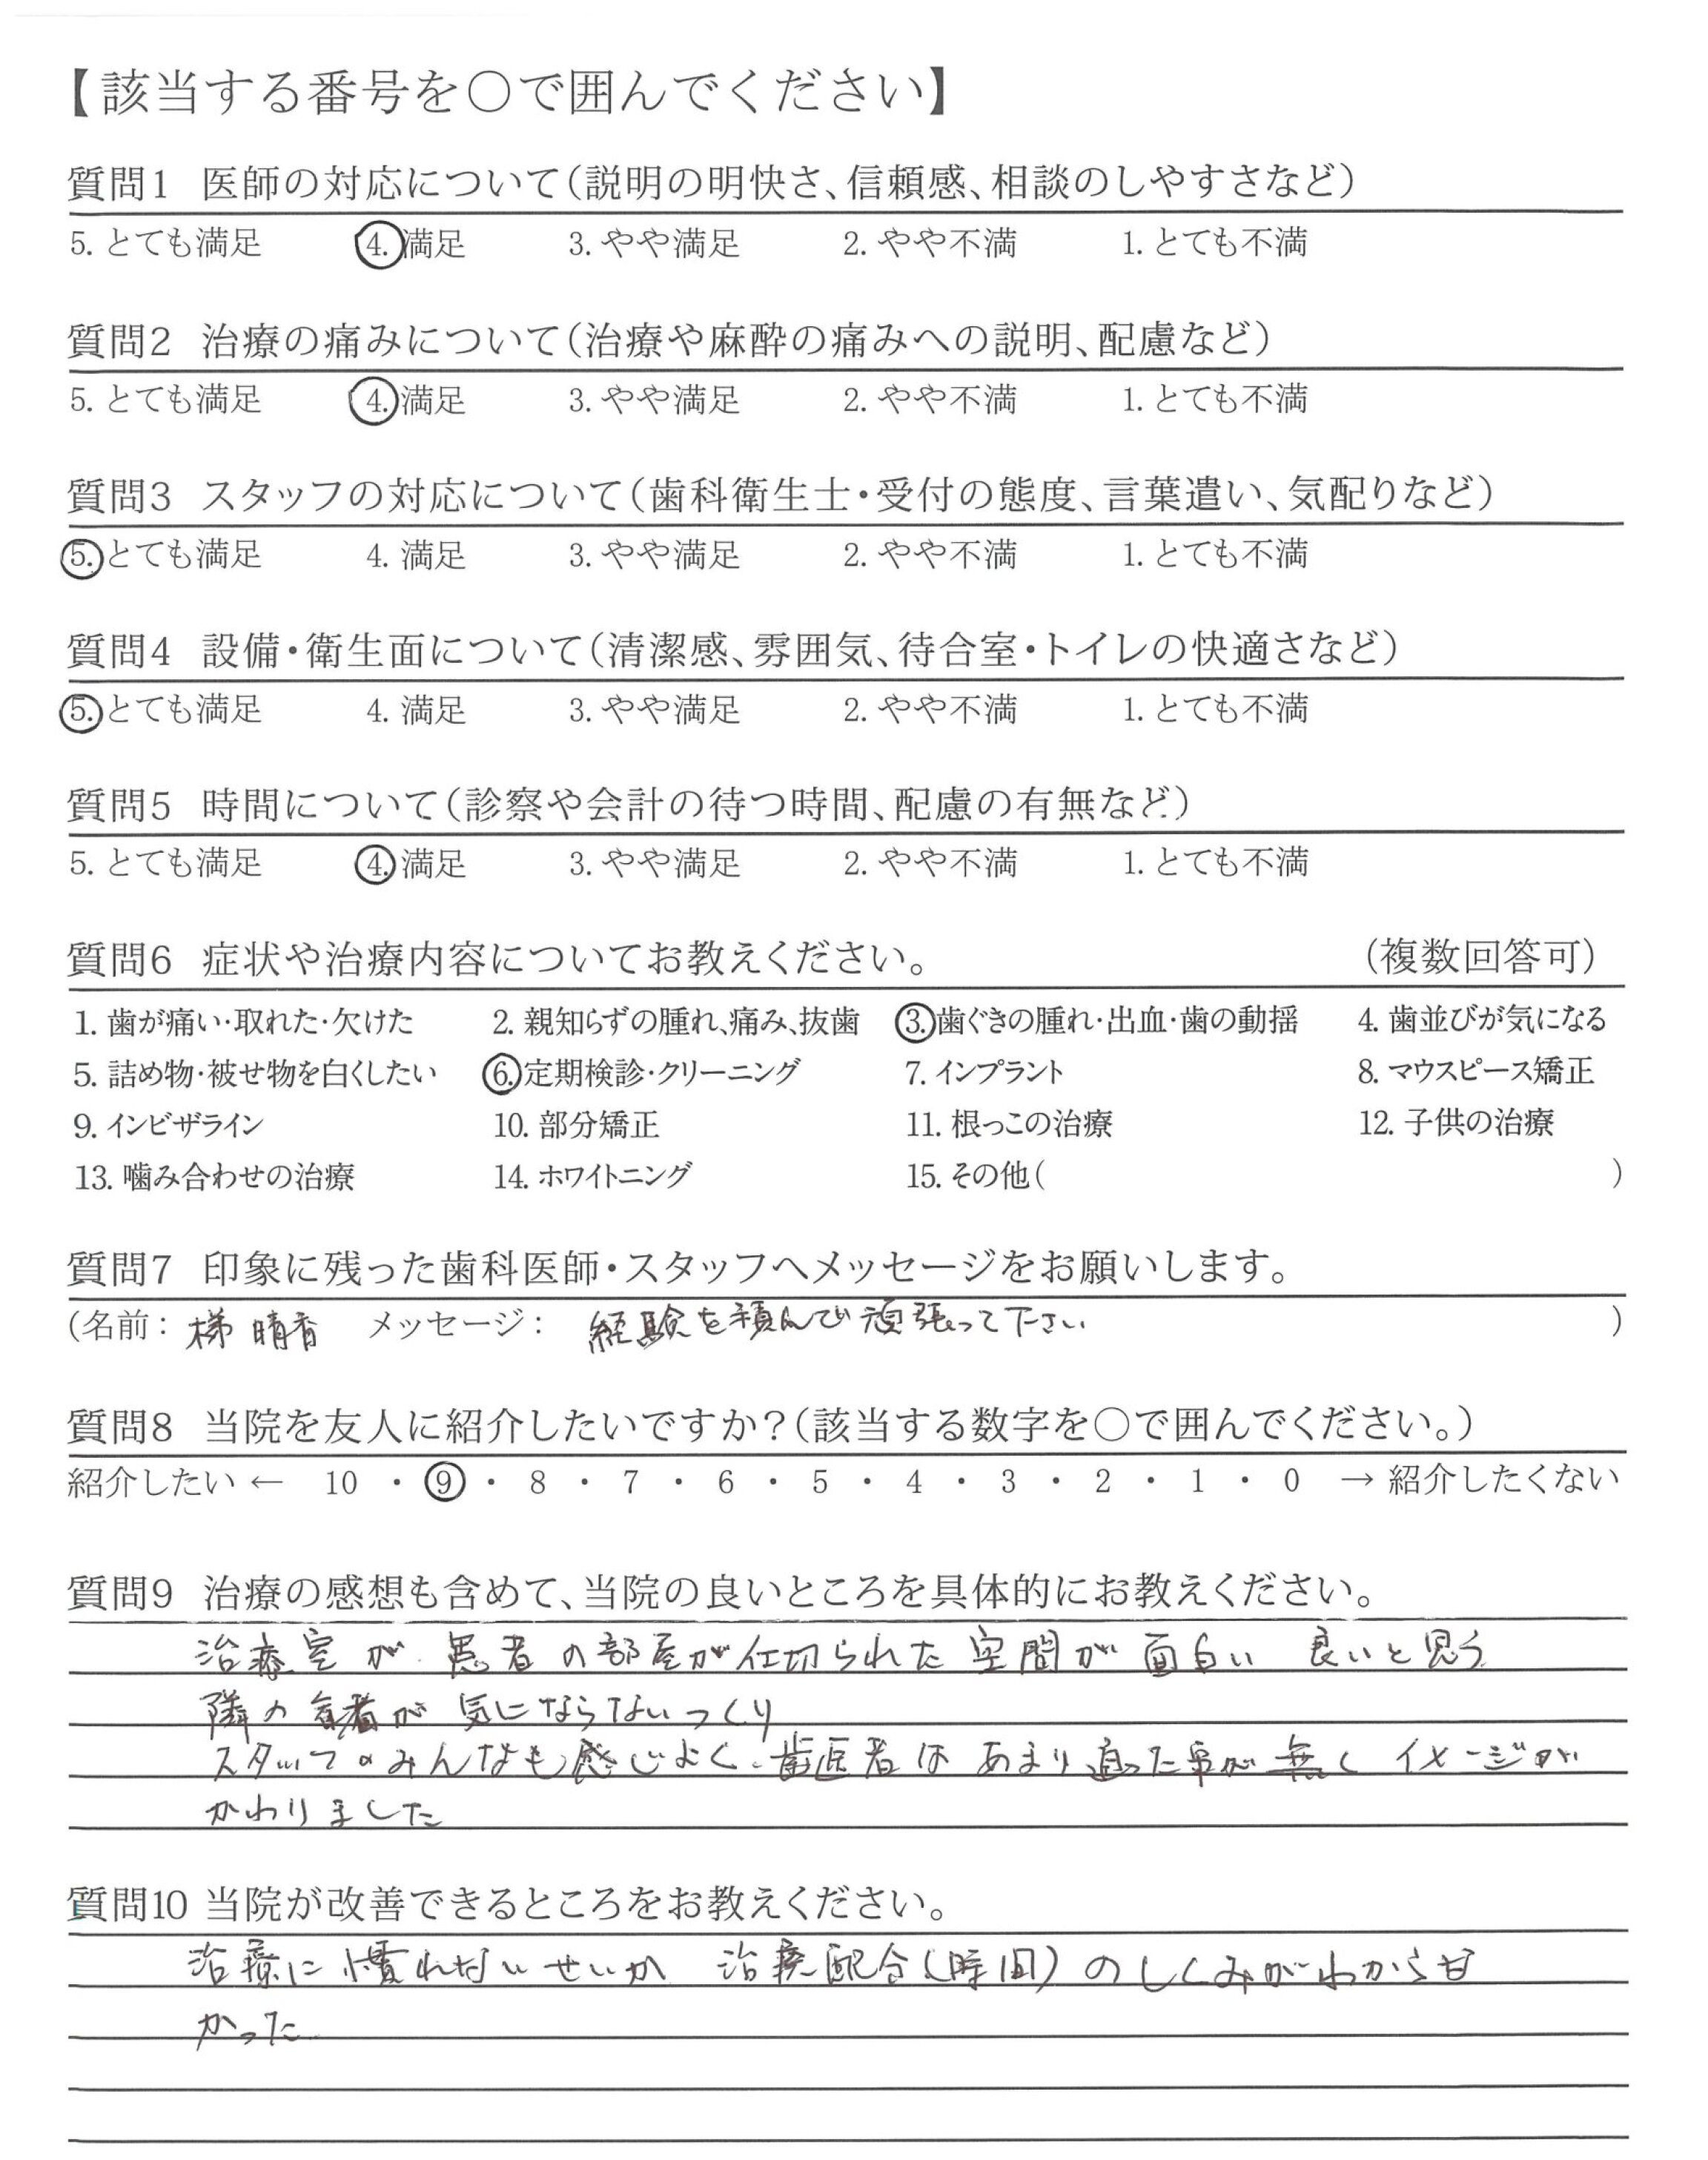 【該当する番号を○で囲んでください】
質問1 医師の対応について(説明の明快さ、信頼感、相談のしやすさなど)
5. とても満足 4. 満足 3. やや満足 2. やや不満 1. とても不満
質問2 治療の痛みについて(治療や麻酔の痛みへの説明、配慮など)
5. とても満足 4. 満足 3. やや満足 2. やや不満 1. とても不満
質問3 スタッフの対応について(歯科衛生士・受付の態度、言葉遣い、気配りなど)
5. とても満足 4. 満足 3. やや満足 2. やや不満 1. とても不満
質問4 設備・衛生面について(清潔感、雰囲気、待合室・トイレの快適さなど)
5. とても満足 4. 満足 3. やや満足 2. やや不満 1. とても不満
質問5 時間について(診察や会計の待つ時間、配慮の有無など)
5. とても満足 4. 満足 3. やや満足 2. やや不満 1. とても不満
質問6 症状や治療内容についてお教えください。 (複数回答可)
1. 歯が痛い・取れた・欠けた 2. 親知らずの腫れ、痛み、抜歯 3. 歯ぐきの腫れ・出血・歯の動揺 4. 歯並びが気になる
5. 詰め物・被せ物を白くしたい 6. 定期検診・クリーニング 7. インプラント 8. マウスピース矯正
9. インビザライン 10. 部分矯正 11. 根っこの治療 12. 子供の治療
13. 噛み合わせの治療 14. ホワイトニング 15. その他( )
質問7 印象に残った歯科医師・スタッフへメッセージをお願いします。
(名前: 梯 晴香 メッセージ: 経験を積んで頑張って下さい )
質問8 当院を友人に紹介したいですか?(該当する数字を○で囲んでください。)
紹介したい ← 10 ・ 9 ・ 8 ・ 7 ・ 6 ・ 5 ・ 4 ・ 3 ・ 2 ・ 1 ・ 0 → 紹介したくない
質問9 治療の感想も含めて、当院の良いところを具体的にお教えください。
治療室が 患者の部屋が仕切られた空間が 面白い 良いと思う
隣の患者が 気にならないつくり
スタッフのみんなも感じよく 歯医者は あまり通った事が無く イメージが
かわりました
質問10 当院が改善できるところをお教えください。
治療に慣れないせいか 治療配合(時間)のしくみがわからな
かった